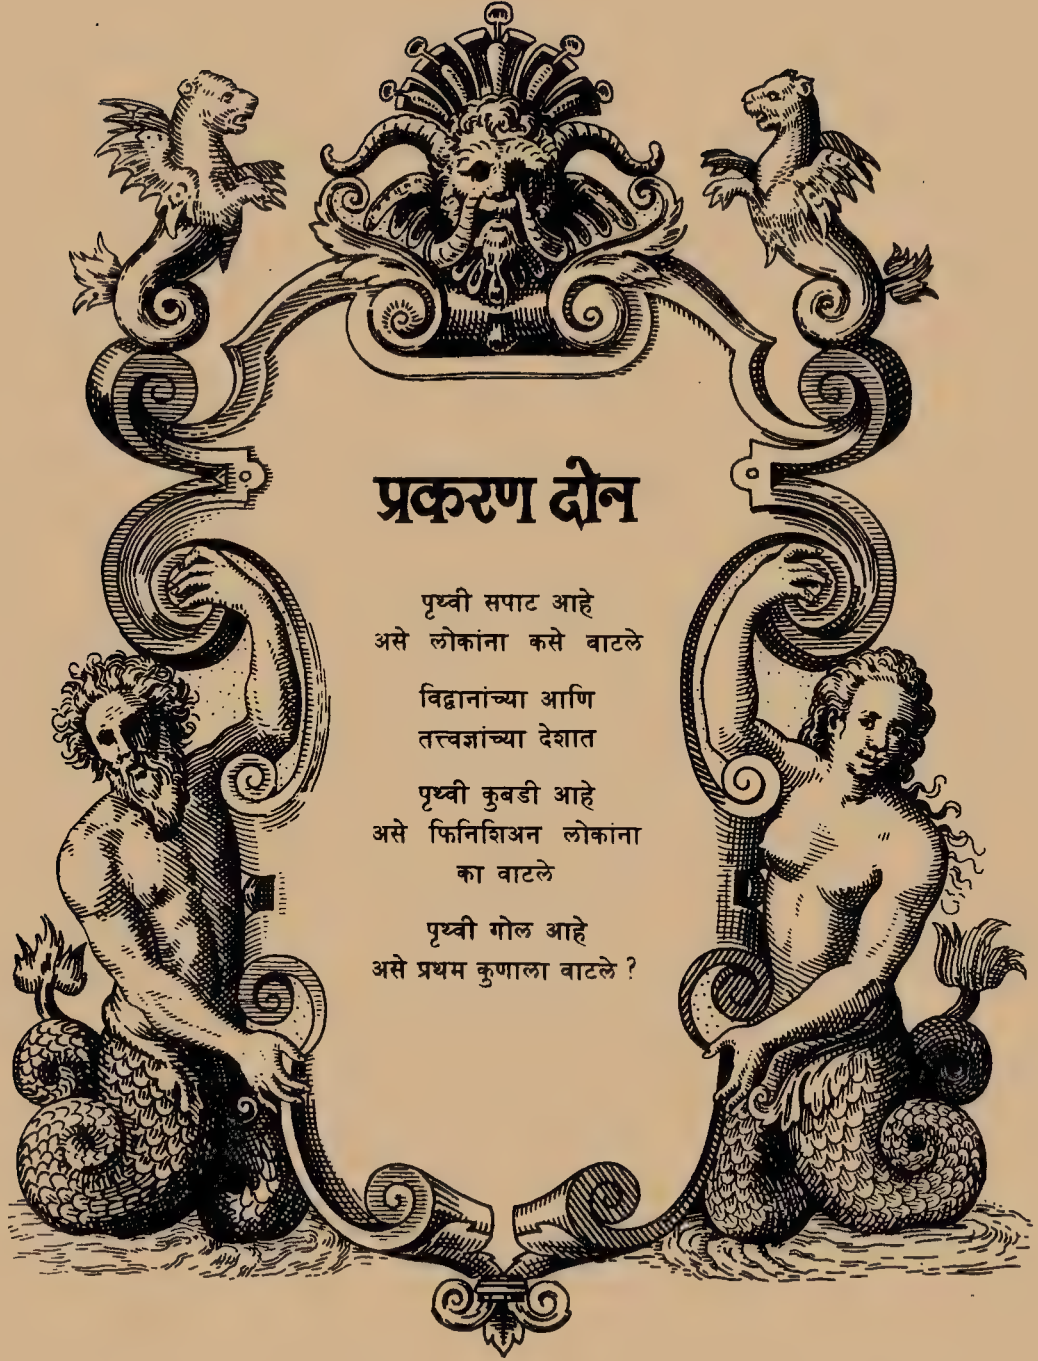 प्रकरण दोन
पृथ्वी सपाट आहे
असे लोकांना कसे वाटले
विद्वानांच्या आणि
तत्त्वज्ञांच्या देशात
पृथ्वी कुबडी आहे
असे फिनिशिअन लोकांना
का वाटले
पृथ्वी गोल आहे
असे प्रथम कुणाला वाटले ?